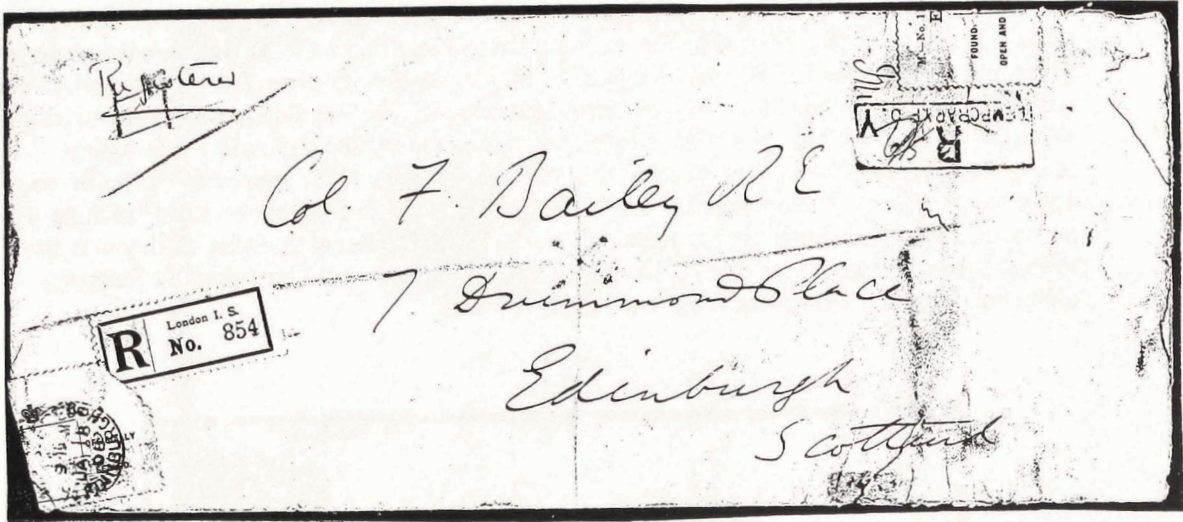 Registered
M.—No. 1
E
FOUND
OPEN AND
R
Col. F. Bailey R E
7 Drummond Place
Edinburgh
Scotland
R
London I. S.
No. 854
EDINBURGH